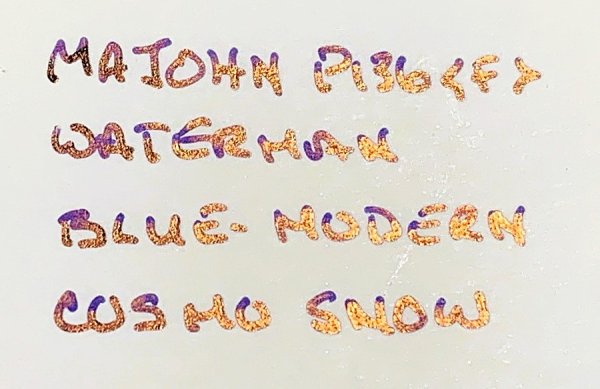 MAJOHN P136 <F>
WATERMAN
BLUE-MODERN
COSMO SNOW